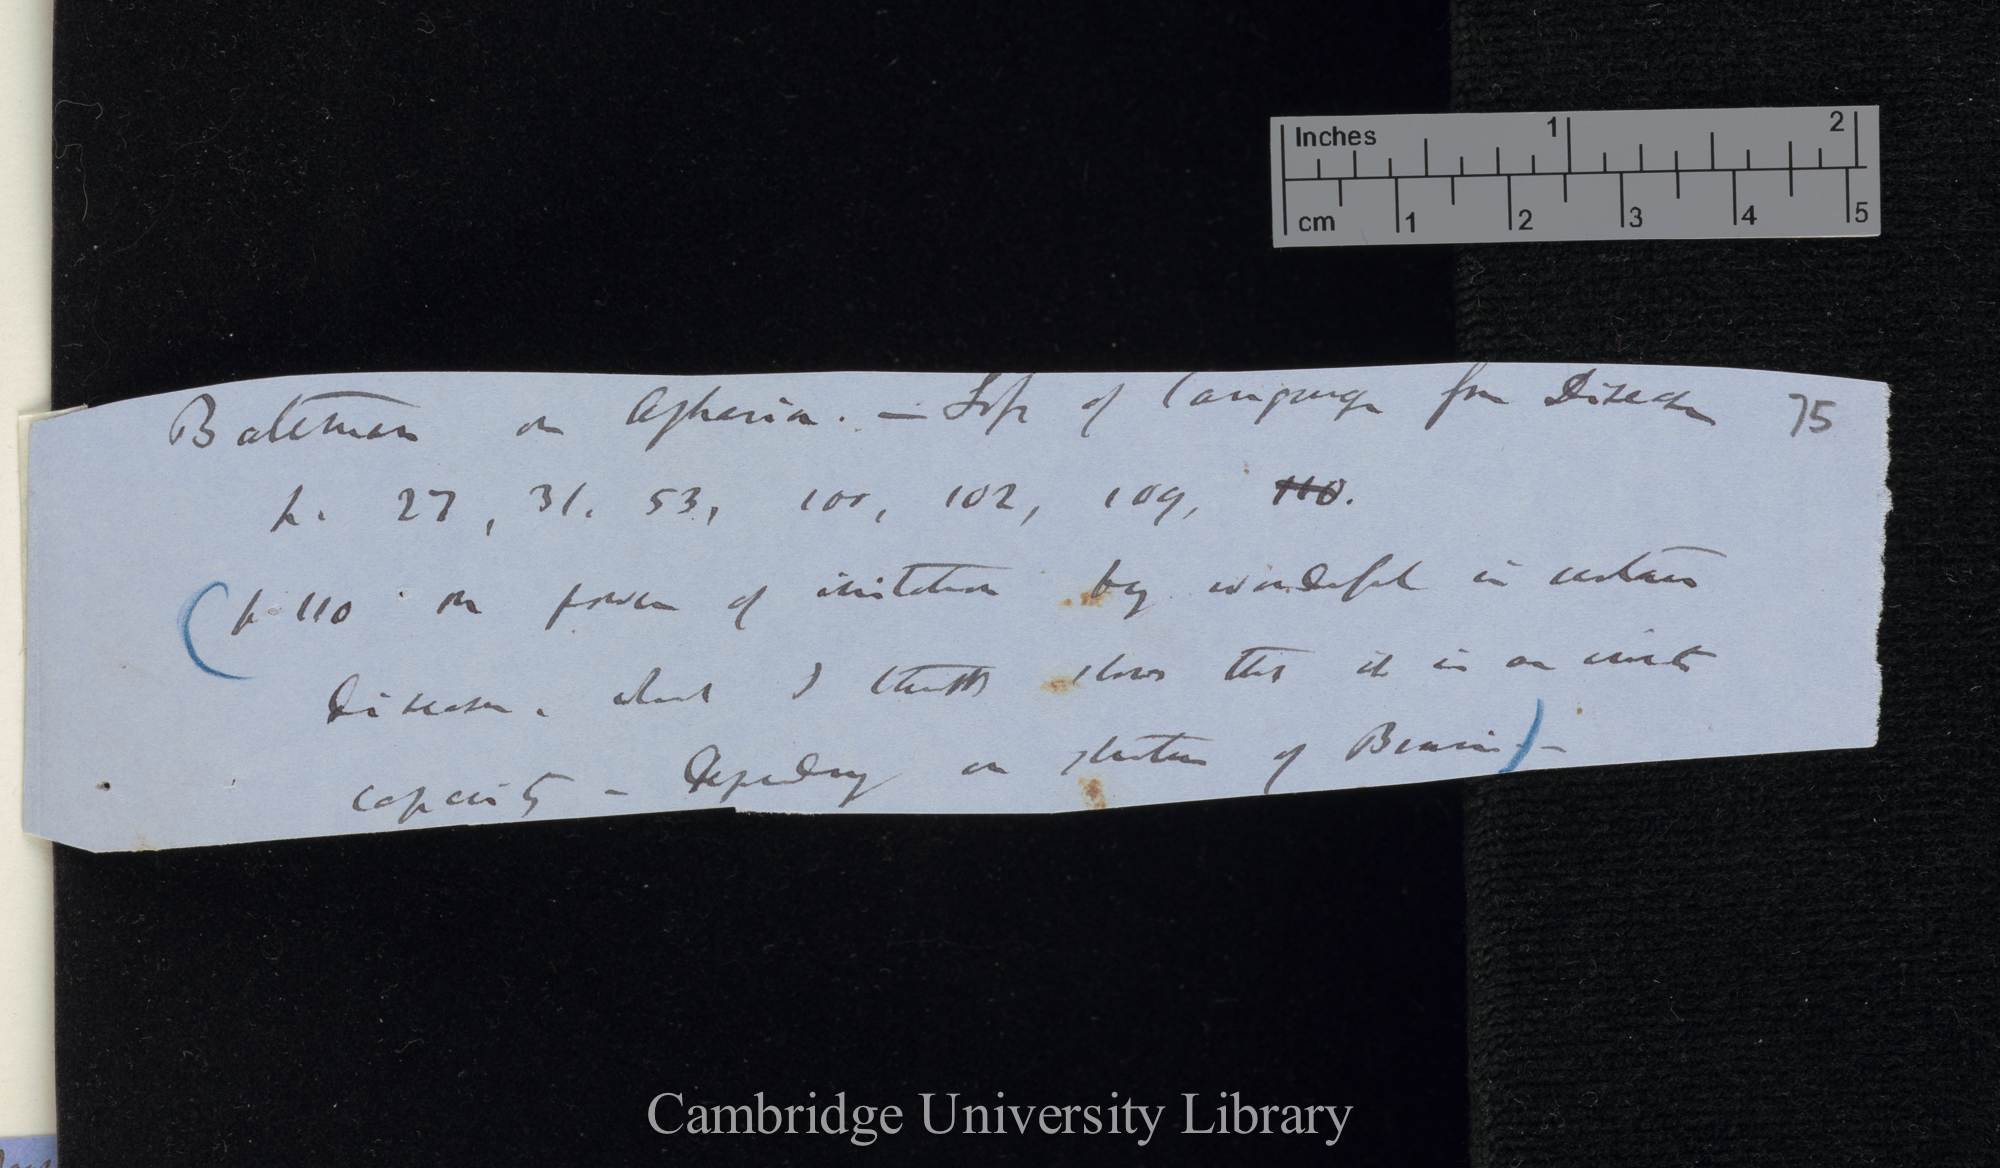 Inches 1 2
cm 1 2 3 4 5
Bateman on Aphasia. — Loss of Language from Disease 75
p. 27, 31. 53, 100, 102, 109, 110.
(p. 110 on power of imitation being wonderful in certain
Diseases. which I think shows that it is an innate
capacity — Depending on structure of Brain) —
Cambridge University Library